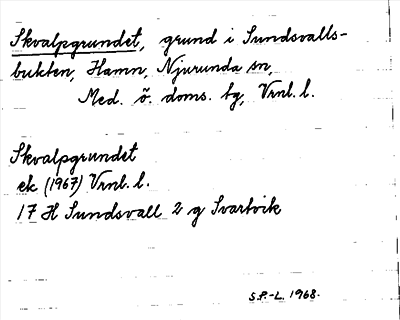 Skvalpgrundet, grund i Sundsvalls-
bukten, Hamn, Njurunda sn,
Med. ö. doms. tg, Vrnl. l.
Skvalpgrundet
ek (1967) Vrnl. l.
17 H Sundsvall 2 g Svartvik
S.P.-L. 1968.